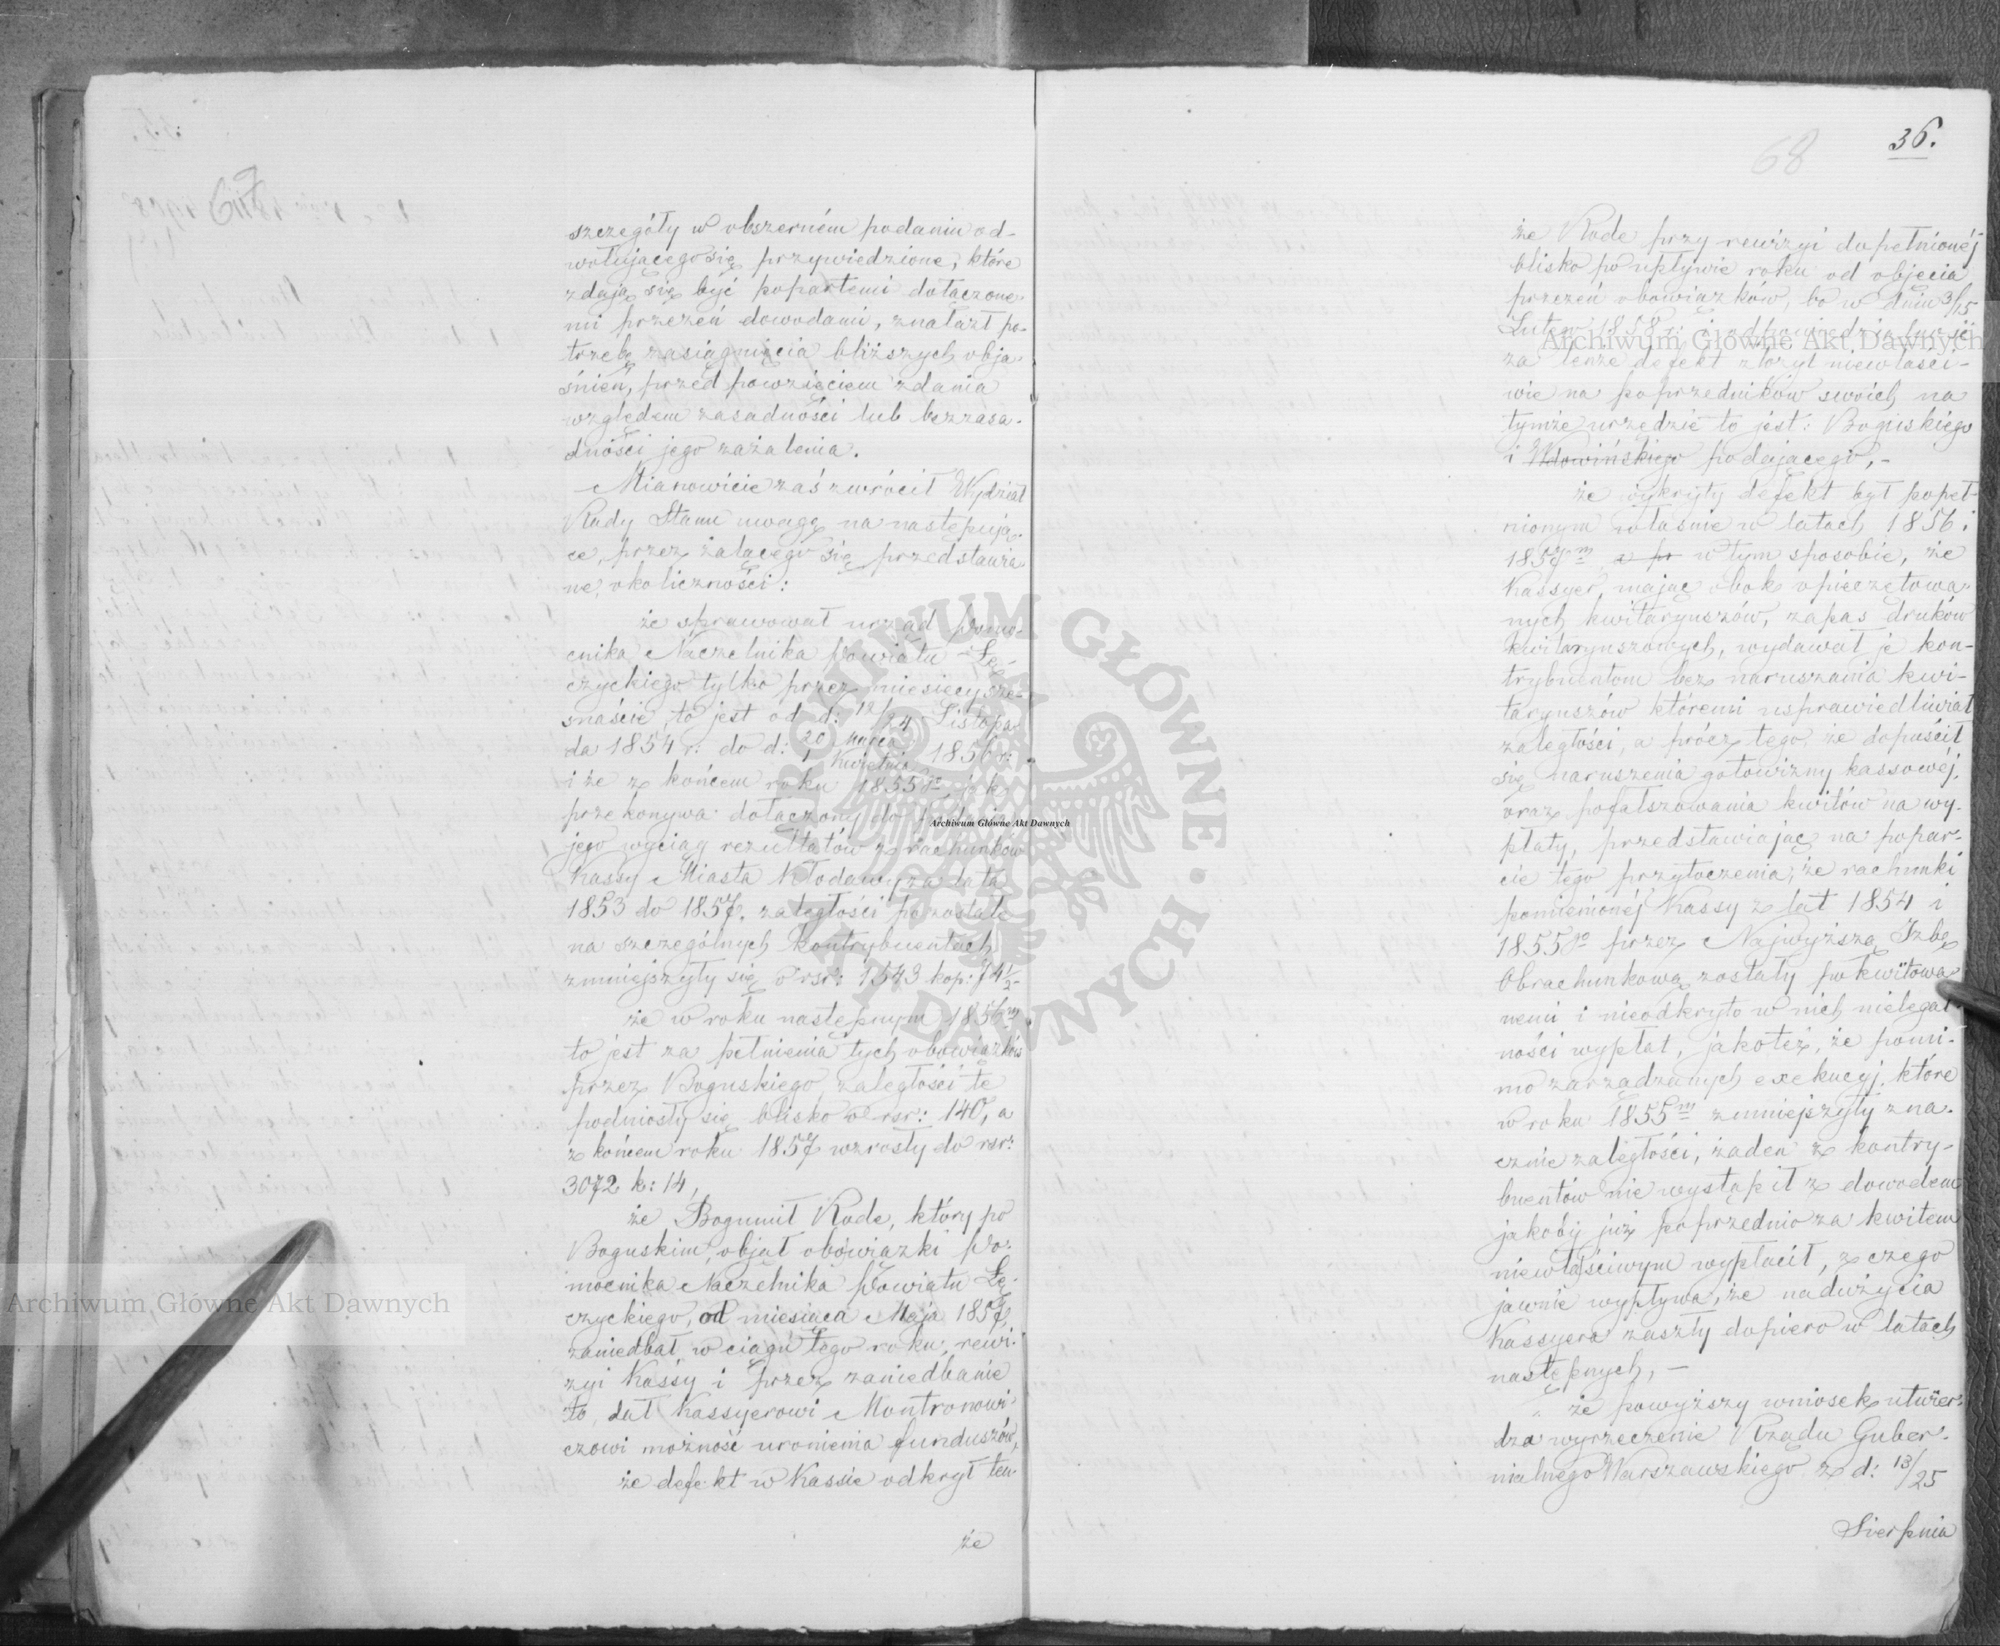 67
szczegóły w obszerném podaniu od-
wołującego się przywiedzione, które
zdają się być popartemi dołączone-
mi przezeń dowodami, znalazł po-
trzebę zasiągnięcia bliższych obja-
śnień, przed powzięciem zdania
względem zasadności lub bezzasa-
dności jego zażalenia.
Mianowicie zaś zwrócił Wydział
Rady Stanu uwagę na następują-
ce, przez żalącego się przedstawio-
ne, okoliczności:
że sprawował urząd Pomo-
cnika Naczelnika Powiatu Łę-
czyckiego tylko przez miesięcy sze-
snaście, to jest od d: 12/24 Listopa-
da 1854 r: do d: 20 Marca / 1 Kwietnia 1856 r:
i że z końcem roku 1855go jak
przekonywa dołączony do podania
jego wyciąg rezultatów z rachunków
Kassy Miasta Kłodawy za lata
1853 do 1857, zaległości pozostałe
na szczególnych kontrybuentach
zmniejszyły się o rsr: 1543 kop: 74½
że w roku następnym 1856m
to jest za pełnienia tych obowiązków
przez Boguskiego, zaległości te
podniosły się blisko o rsr: 140, a
z końcem roku 1857 wzrosły do rsr:
3072 k: 14,
że Bogumił Rode, który po
Boguskim, objął obowiązki Po-
mocnika Naczelnika Powiatu Łę-
czyckiego, od miesiąca Maja 1857,
zaniedbał w ciągu tego roku, rewi-
zyi Kassy i przez zaniedbanie
to, dał Kassyerowi Montronowi-
czowi możność uronienia funduszów,
że defekt w Kassie odkrył ten-
że
36.
68
że Rode przy rewizyi dopełnionéj
blisko po upływie roku od objęcia
przezeń obowiązków, bo w dniu 3/15
Lutego 1858 r: i odpowiedzialność
za tenże defekt złożył niewłaści-
wie na poprzedników swoich na
tymże urzędzie to jest: Boguskiego
i Wdowińskiego podającego, –
że wykryty defekt był popeł-
nionym właśnie w latach 1856 i
1857m a pr w tym sposobie, że
Kassyer, mając obok opieczętowa-
nych kwitaryuszów, zapas druków
kwitaryuszowych, wydawał je kon-
trybuentom bez naruszania kwi-
taryuszów któremi usprawiedliwiał
zaległości, a prócz tego, że dopuścił
się naruszenia gotowizny kassowéj,
oraz pofałszowania kwitów na wy-
płaty, przedstawiając na popar-
cie tego przytoczenia, że rachunki
pomienionéj Kassy z lat 1854 i
1855go przez Najwyższą Izbę
Obrachunkową zostały pokwitowa-
nemi i nieodkryto w nich nielegal-
ności wypłat, jakoteż, że pomi-
mo zarządzanych exekucyj, które
w roku 1855m zmniejszyły zna-
cznie zaległości, żaden z kontry-
buentów nie wystąpił z dowodem
jakoby już poprzednio za kwitem
niewłaściwym wypłacił, z czego
jawnie wypływa, że nadużycia
Kassyera zaszły dopiero w latach
następnych, –
że powyższy wniosek utwier-
dza wyrzeczenie Rządu Guber-
nialnego Warszawskiego z d: 13/25
Sierpnia
Archiwum Główne Akt Dawnych
Archiwum Główne Akt Dawnych
Archiwum Główne Akt Dawnych
ARCHIWUM GŁÓWNE AKT DAWNYCH